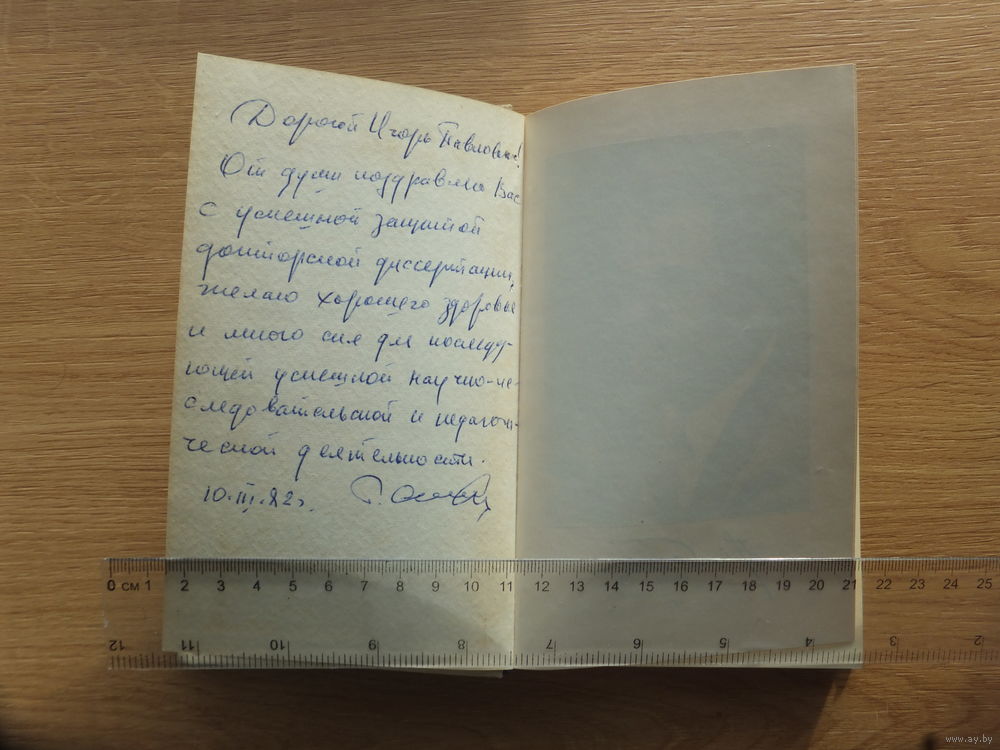 Дорогой Игорь Павлович!
От души поздравляю Вас
с успешной защитой
докторской диссертации,
желаю хорошего здоровья
и много сил для последу-
ющей успешной научно-ис-
следовательской и педагоги-
ческой деятельности.
10.III.82г.
0 см 1 2 3 4 5 6 7 8 9 10 11 12 13 14 15 16 17 18 19 20 21 22 23 24 25
12 11 10 9 8 7 6 5 4 3 2
www.ay.by